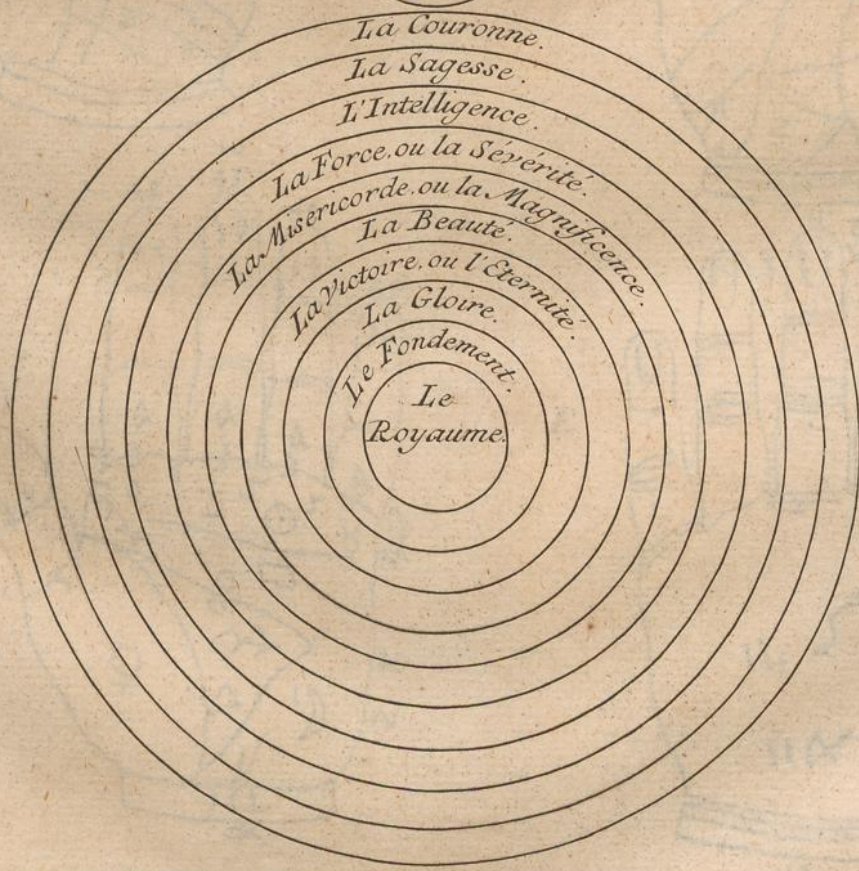 La Couronne.
La Sagesse.
L'Intelligence.
La Force, ou la Sévérité.
La Misericorde, ou la Magnificence.
La Beauté.
La Victoire, ou l'Eternité.
La Gloire.
Le Fondement.
Le
Royaume.